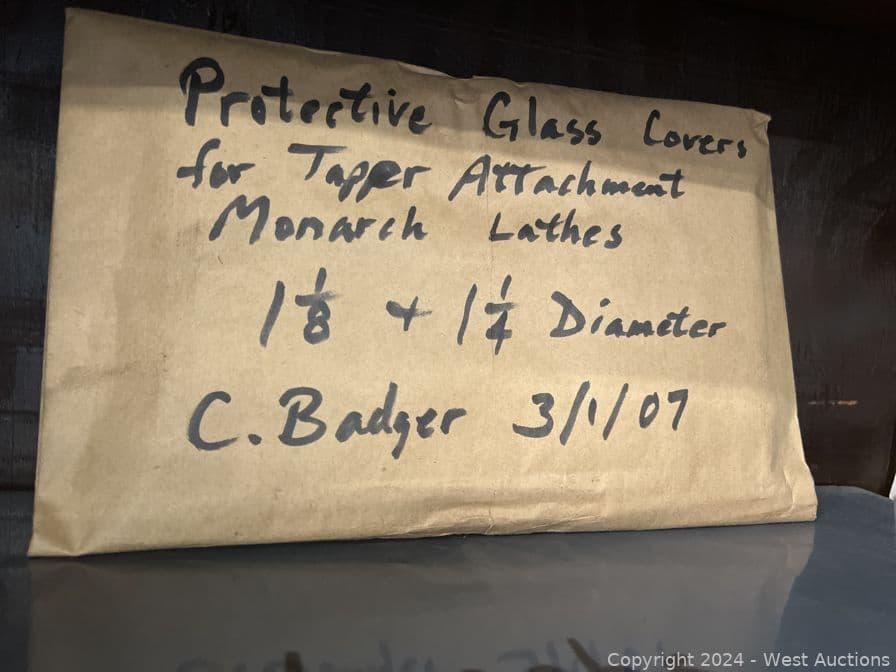 Protective Glass Covers
for Tapper Attachment
Monarch Lathes
1 1/8 + 1 1/4 Diameter
C. Badger 3/1/07
Copyright 2024 - West Auctions